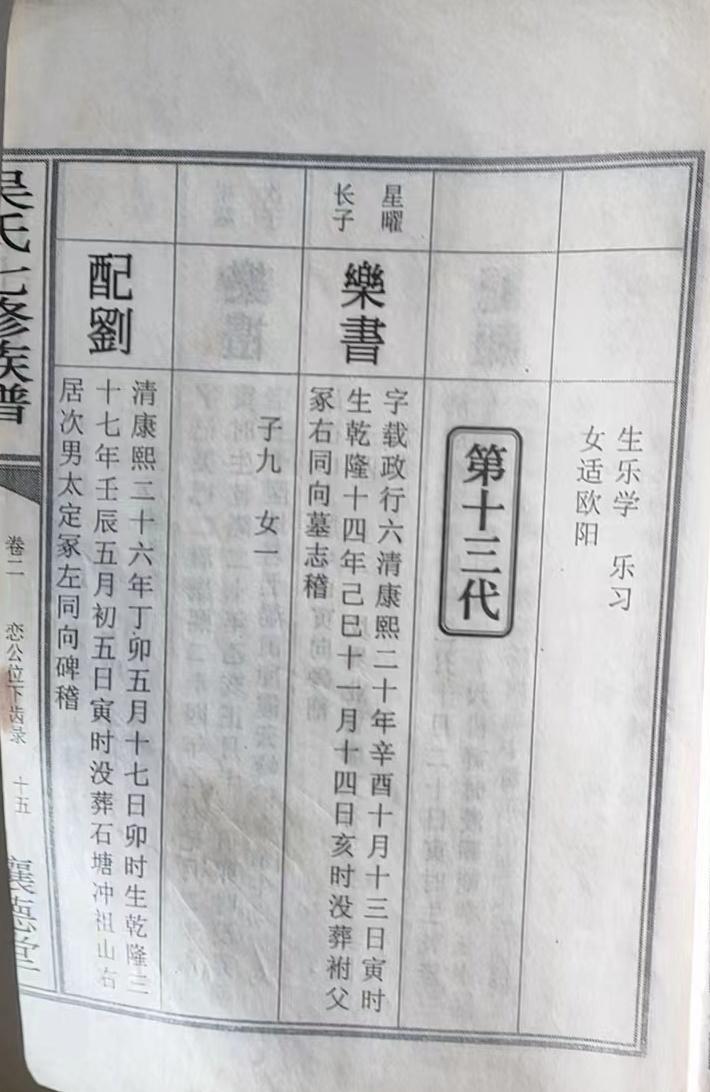 生乐学 乐习
女适欧阳
第十三代
星曜
长子
樂書
字载政行六清康熙二十年辛酉十月十三日寅时
生乾隆十四年己巳十一月十四日亥时没葬祔父
冢右同向墓志稽
子九 女一
配劉
清康熙二十六年丁卯五月十七日卯时生乾隆三
十七年壬辰五月初五日寅时没葬石塘冲祖山右
居次男太定冢左同向碑稽
吴氏七修族谱
卷二 恋公位下齿录 十五
襄德堂